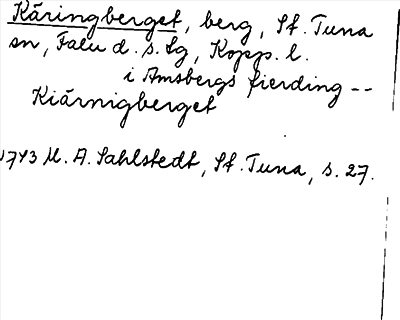 Käringberget, berg, St. Tuna
sn, Falu d. s. lg, Kopp. l.
i Amsbergs fierding --
Kiärnigberget
1743 M. A. Sahlstedt, St. Tuna, s. 27.